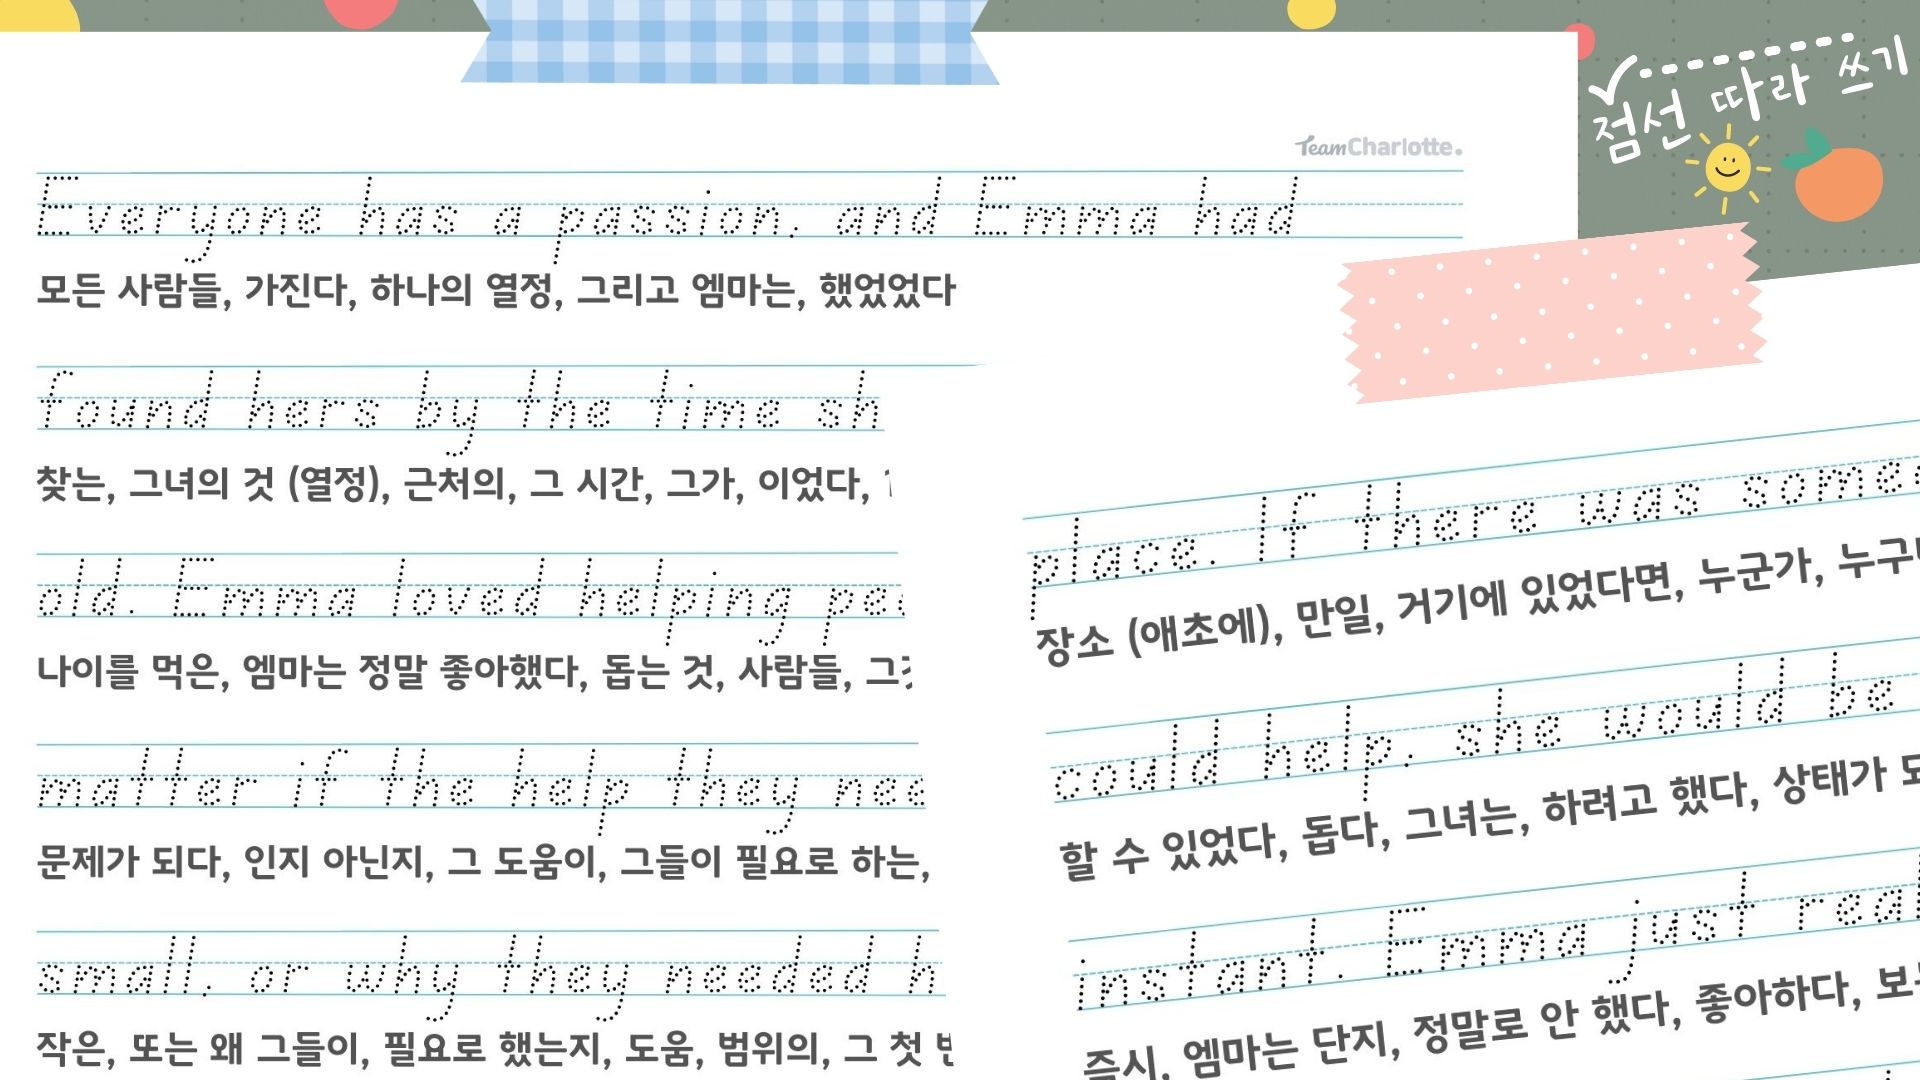 점선 따라 쓰기
TeamCharlotte.
Everyone has a passion, and Emma had
모든 사람들, 가진다, 하나의 열정, 그리고 엠마는, 했었었다
found hers by the time sh
찾는, 그녀의 것 (열정), 근처의, 그 시간, 그가, 이었다,
old. Emma loved helping
나이를 먹은, 엠마는 정말 좋아했다, 돕는 것, 사람들,
matter if the help they nee
문제가 되다, 인지 아닌지, 그 도움이, 그들이 필요로 하는,
small, or why they needed h
작은, 또는 왜 그들이, 필요로 했는지, 도움, 범위의, 그 첫
place. If there was some
장소 (애초에), 만일, 거기에 있었다면, 누군가, 누구
could help, she would be
할 수 있었다, 돕다, 그녀는, 하려고 했다, 상태가
instant. Emma just real
즉시, 엠마는 단지, 정말로 안 했다, 좋아하다,